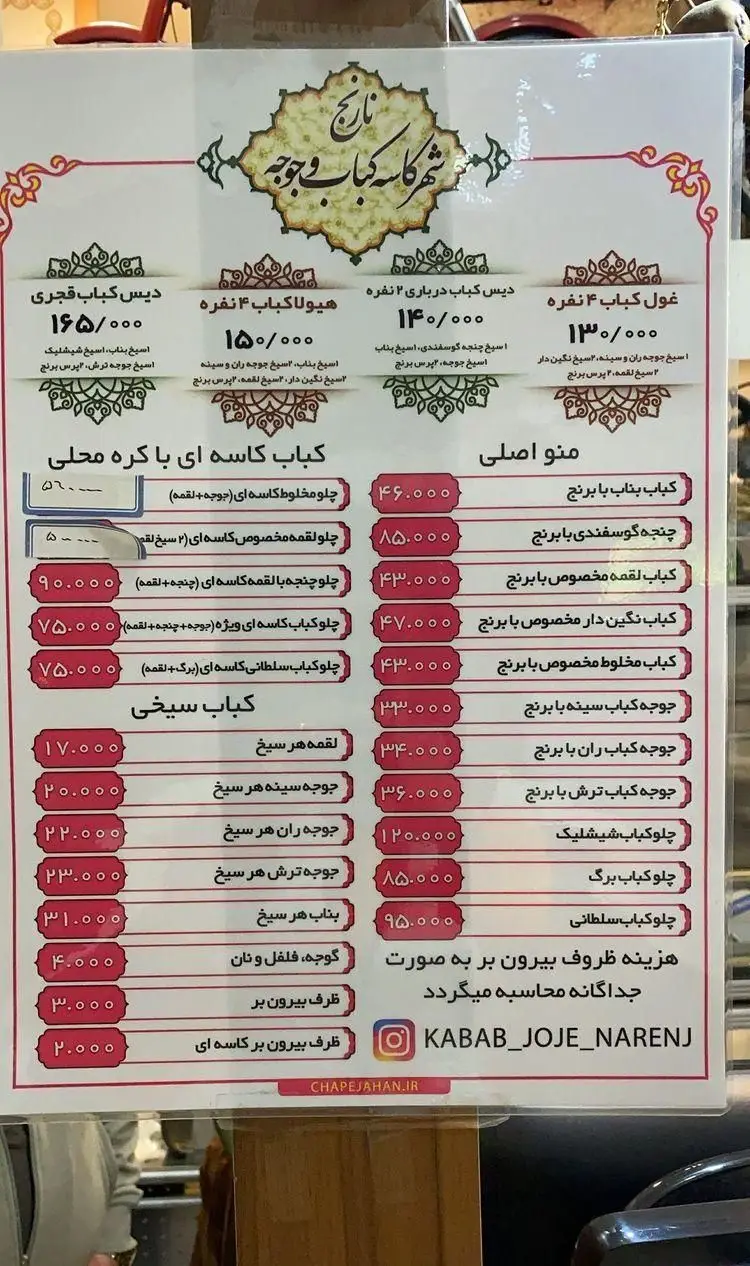 نارنج
شهر کاسه کباب و جوجه
غول کباب ۴ نفره
۱۳۰/۰۰۰
۱سیخ جوجه ران و سینه، ۲سیخ نگین دار
۲سیخ لقمه، ۲پرس برنج
دیس کباب درباری ۲ نفره
۱۴۰/۰۰۰
۱سیخ چنجه گوسفندی، ۱سیخ بناب
۱سیخ جوجه، ۲پرس برنج
هیولا کباب ۴ نفره
۱۵۰/۰۰۰
۱سیخ بناب، ۲سیخ جوجه ران و سینه
۲سیخ نگین دار، ۲سیخ لقمه، ۲پرس برنج
دیس کباب قجری
۱۶۵/۰۰۰
۱سیخ بناب، ۱سیخ شیشلیک
۱سیخ جوجه ترش، ۲پرس برنج
منو اصلی
کباب بناب با برنج ۴۶.۰۰۰
چنجه گوسفندی با برنج ۸۵.۰۰۰
کباب لقمه مخصوص با برنج ۴۳.۰۰۰
کباب نگین دار مخصوص با برنج ۴۷.۰۰۰
کباب مخلوط مخصوص با برنج ۴۳.۰۰۰
جوجه کباب سینه با برنج ۳۳.۰۰۰
جوجه کباب ران با برنج ۳۴.۰۰۰
جوجه کباب ترش با برنج ۳۶.۰۰۰
چلو کباب شیشلیک ۱۲۰.۰۰۰
چلو کباب برگ ۸۵.۰۰۰
چلو کباب سلطانی ۹۵.۰۰۰
هزینه ظروف بیرون بر به صورت
جداگانه محاسبه میگردد
KABAB_JOJE_NARENJ
کباب کاسه ای با کره محلی
چلو مخلوط کاسه ای (جوجه+لقمه)
چلو لقمه مخصوص کاسه ای (۲ سیخ لقمه
چلو چنجه با لقمه کاسه ای (چنجه+لقمه) ۹۰.۰۰۰
چلو کباب کاسه ای ویژه (جوجه+چنجه+لقمه) ۷۵.۰۰۰
چلو کباب سلطانی کاسه ای (برگ+لقمه) ۷۵.۰۰۰
کباب سیخی
لقمه هر سیخ ۱۷.۰۰۰
جوجه سینه هر سیخ ۲۰.۰۰۰
جوجه ران هر سیخ ۲۲.۰۰۰
جوجه ترش هر سیخ ۲۳.۰۰۰
بناب هر سیخ ۳۱.۰۰۰
گوجه، فلفل و نان ۴.۰۰۰
ظرف بیرون بر ۳.۰۰۰
ظرف بیرون بر کاسه ای ۲.۰۰۰
CHAPEJAHAN.IR